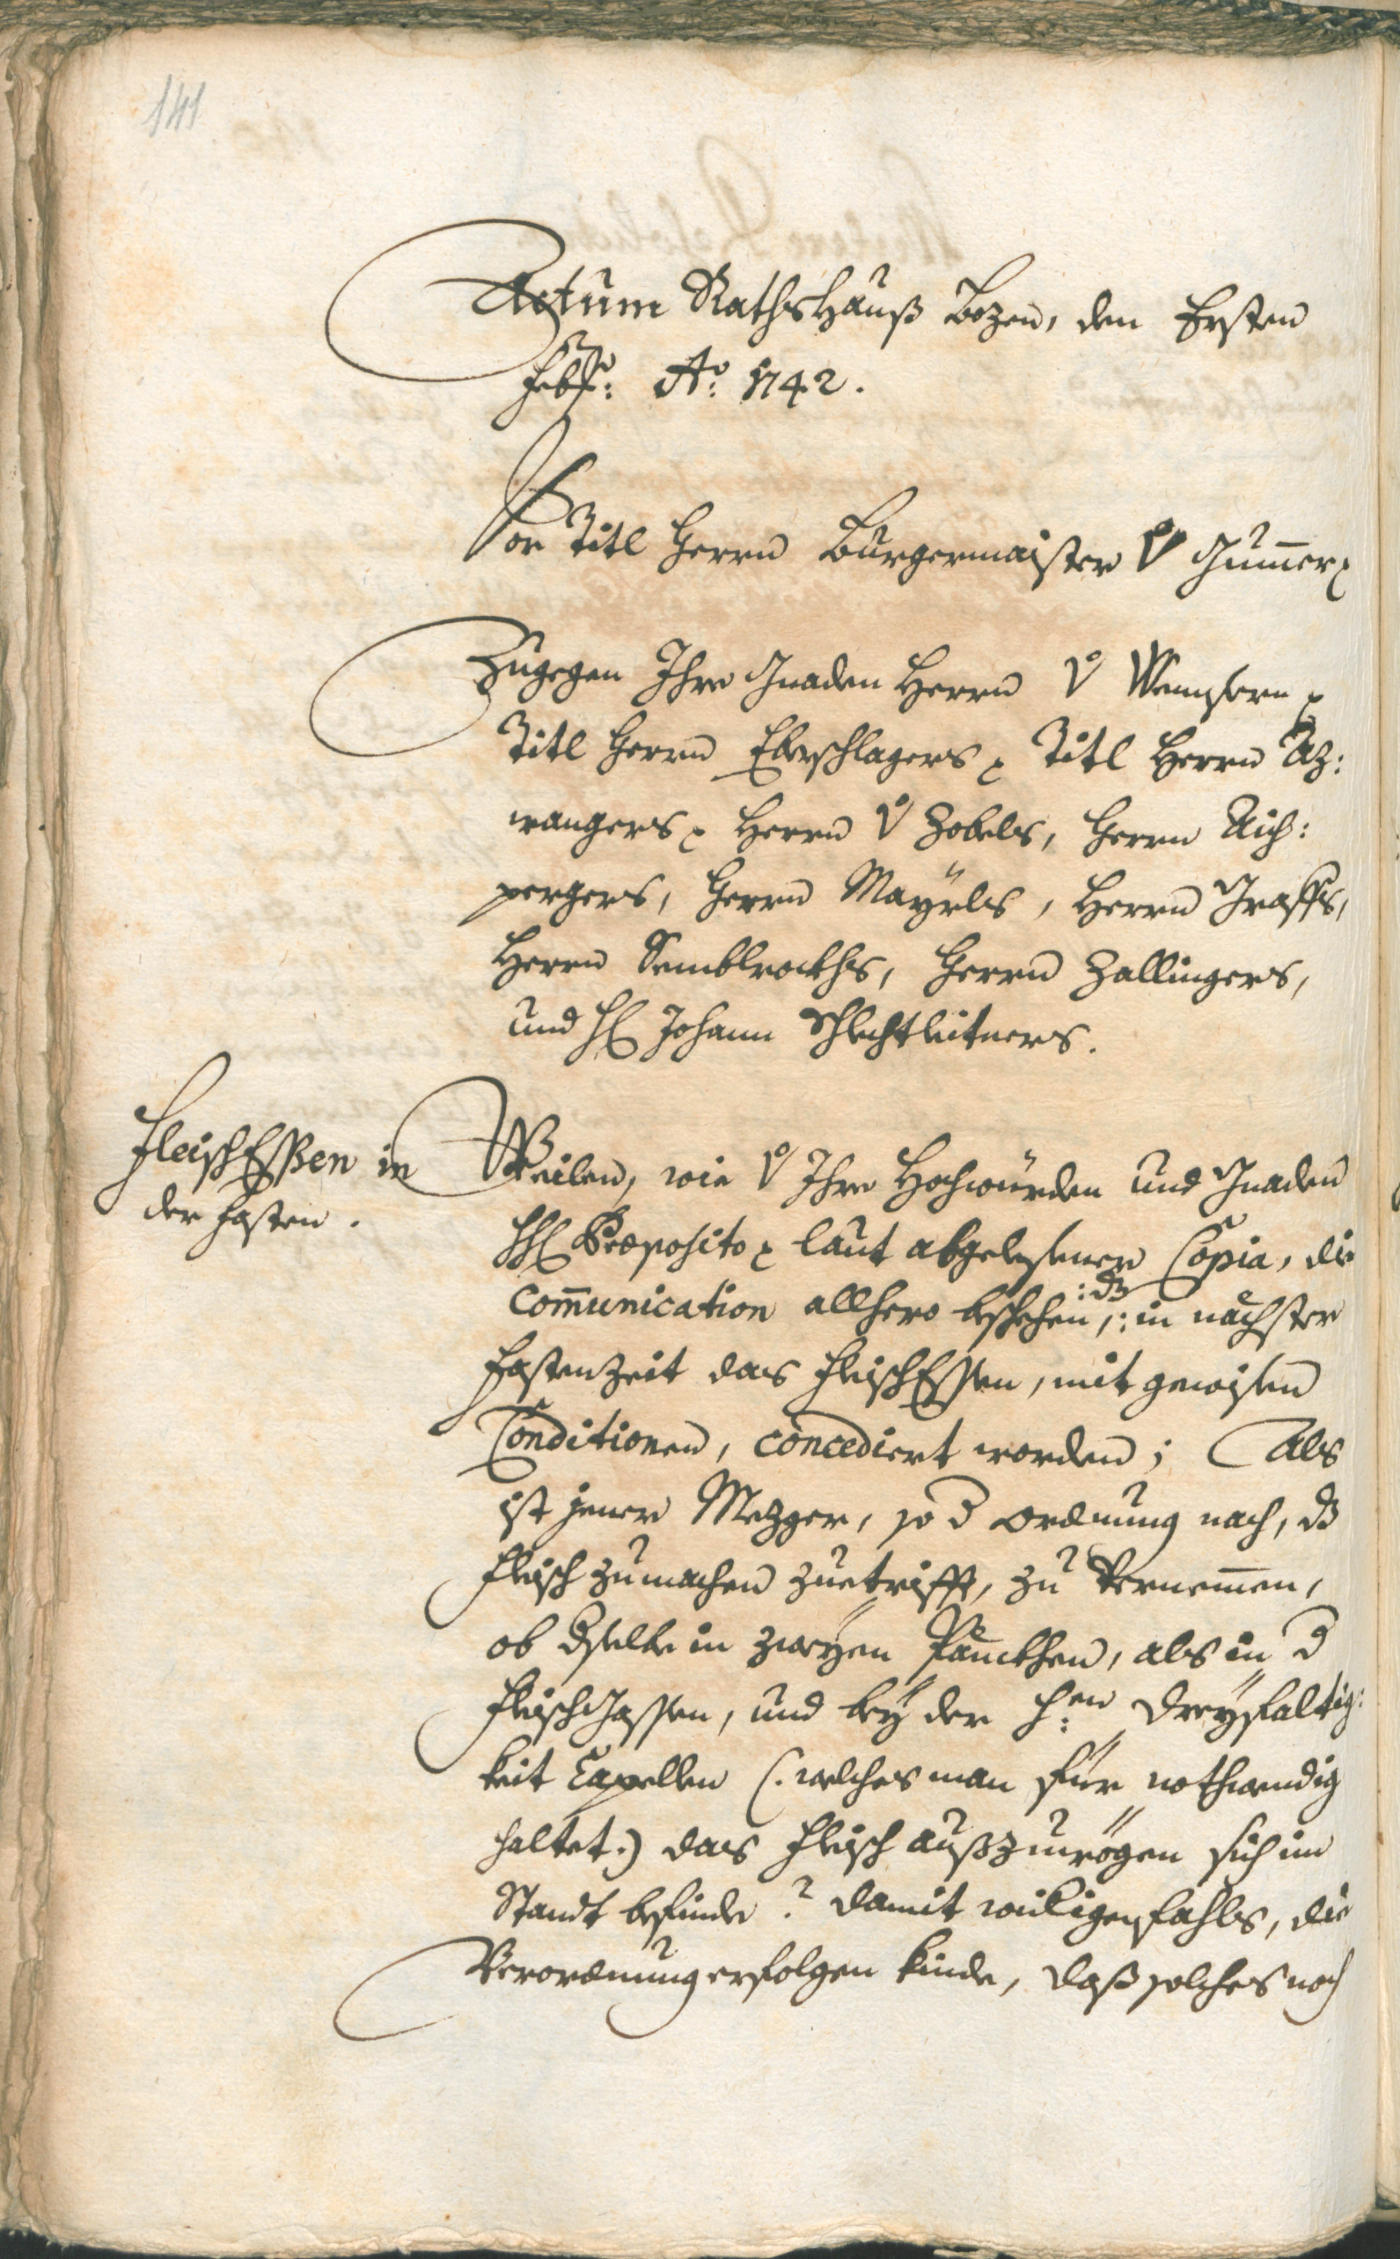 141
Actum RathsHauß Bozen, den Ersten
Febr: Ao: 1742.
Vor Titl Herrn Burgermaister v Gum̄er
Zugegen Ihro Gnaden Herrn v
Titl Herrn Eberschlagers Titl Herrn Az:
wangers Herrn v Zobels, Herrn Aich:
pergers, Herrn Mayrls, Herrn Graffs,
Herrn Semblrockhs, Herrn Zallingers,
und H Johann Schlechtleitners.
FleischEßen in
der Fasten.
Weilen, wie v Ihro Hochwürden und Gnaden
HH Præposito laut abgelesener Copia, die
Com̄unication allhero beschehen, :dz: in nächster
Fastenzeit das FleischEssen, mit gewisen
Conditionen, concediert worden; Als
ist jener Mezger, so d Ordnung nach, dz
Fleisch zumachen zuetrifft, zu Vernem̄en,
ob dselbe in zweyen Pänckhen, als in d
FleischGassen, und bey der H:en Dreyfaltig:
keit Capellen (: welches man für nothwendig
haltet :) das Fleisch außzuwögen sich im
Standt befinde? damit widigenfahls, die
Verordnung erfolgen kinde, daß solches noch